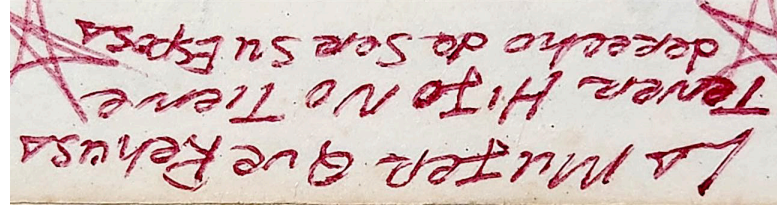 LA MUJER QUE REHUSA
TENER HIJO NO TIENE
derecho de SeR SU ESPOSA